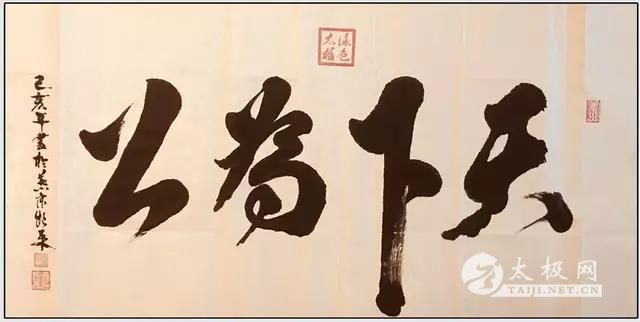 天下為公
己亥年書於燕京
太极网
TAIJI.NET.CN